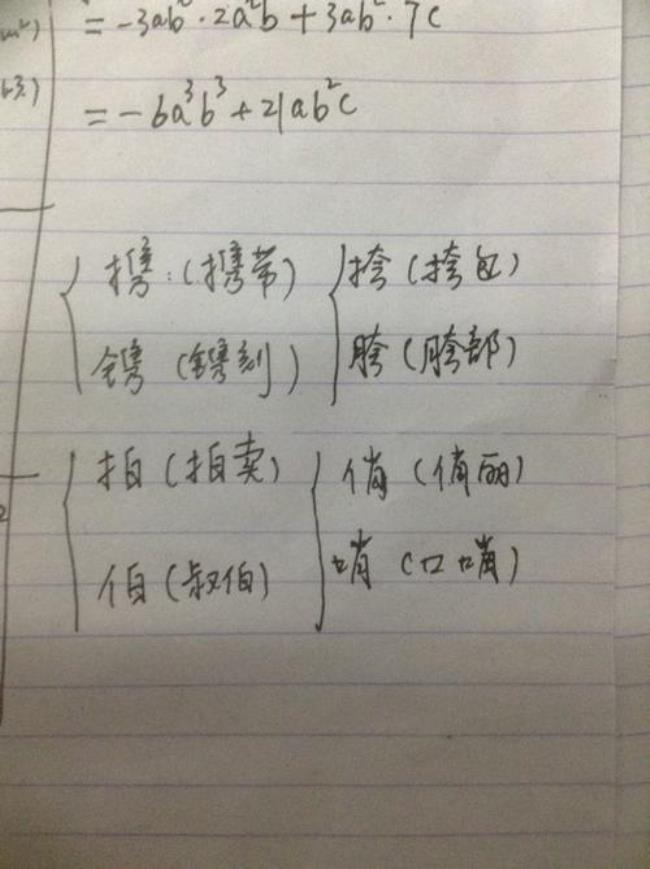 m²)
= -3ab²·2a²b + 3ab²·7c
= -6a³b³ + 21ab²c
携:(携带) 挎(挎包)
镌(镌刻) 胯(胯部)
拍(拍卖) 俏(俏丽)
伯(叔伯) 哨(口哨)
2